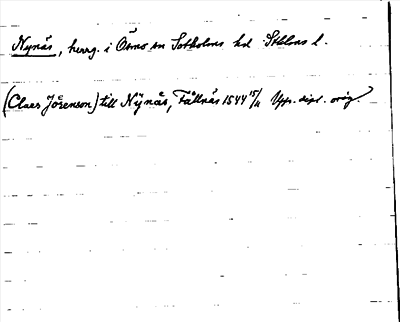 Nynäs, herrg. i Ösmo sn Sotholms hd Sthlms l.
(Claes Jörenson) till Nÿnäs, Fållnäs 1544 15/11 Upps. dipl. orig.